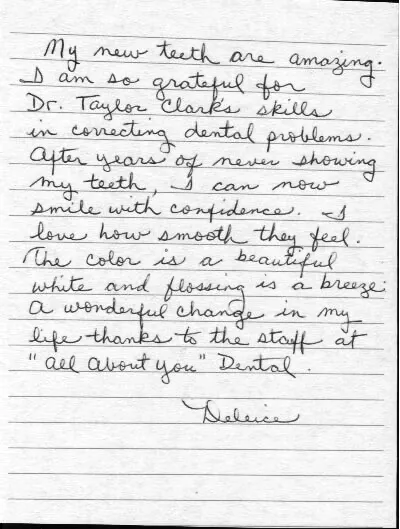 My new teeth are amazing.
I am so grateful for
Dr. Taylor Clark's skills
in correcting dental problems.
After years of never showing
my teeth, I can now
smile with confidence. I
love how smooth they feel.
The color is a beautiful
white and flossing is a breeze.
A wonderful change in my
life thanks to the staff at
"All About You" Dental.
Deleice